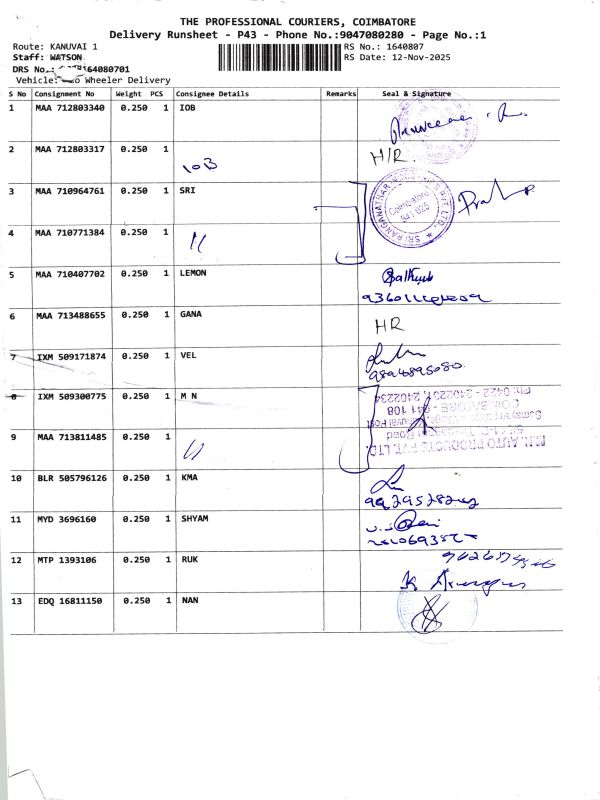 THE PROFESSIONAL COURIERS, COIMBATORE
Delivery Runsheet - P43 - Phone No.:9047080280 - Page No.:1
Route: KANUVAI 1
RS No.: 1640807
Staff: WATSON
RS Date: 12-Nov-2025
DRS No.: 164080701
Vehicle: Wheeler Delivery
S No Consignment No Weight PCS Consignee Details Remarks Seal & Signature
1 MAA 712803340 0.250 1 IOB
2 MAA 712803317 0.250 1 IOB H/R.
3 MAA 710964761 0.250 1 SRI
SRI RANGANATHAR INDUSTRIES PVT LTD.
Coimbatore
641 025
4 MAA 710771384 0.250 1 "
5 MAA 710407702 0.250 1 LEMON
6 MAA 713488655 0.250 1 GANA HR
7 IXM 509171874 0.250 1 VEL
9894895080
8 IXM 509300775 0.250 1 M N
M.N. AUTO PRODUCTS PVT. LTD.
Ph: 0422 - 2402231, 2402234
9 MAA 713811485 0.250 1 "
10 BLR 505796126 0.250 1 KMA
11 MYD 3696160 0.250 1 SHYAM
12 MTP 1393106 0.250 1 RUK
13 EDQ 16811150 0.250 1 NAN